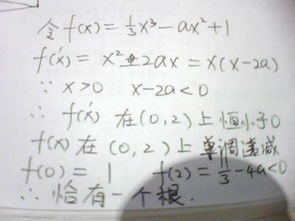 令 f(x) = ⅓x³ - ax² + 1
f'(x) = x² - 2ax = x(x-2a)
∵ x>0 x-2a<0
∴ f'(x) 在(0,2)上恒小于0
f(x) 在(0,2)上单调递减
f(0) = 1 f(2) = 11/3 - 4a<0
∴ 恰有一个根.